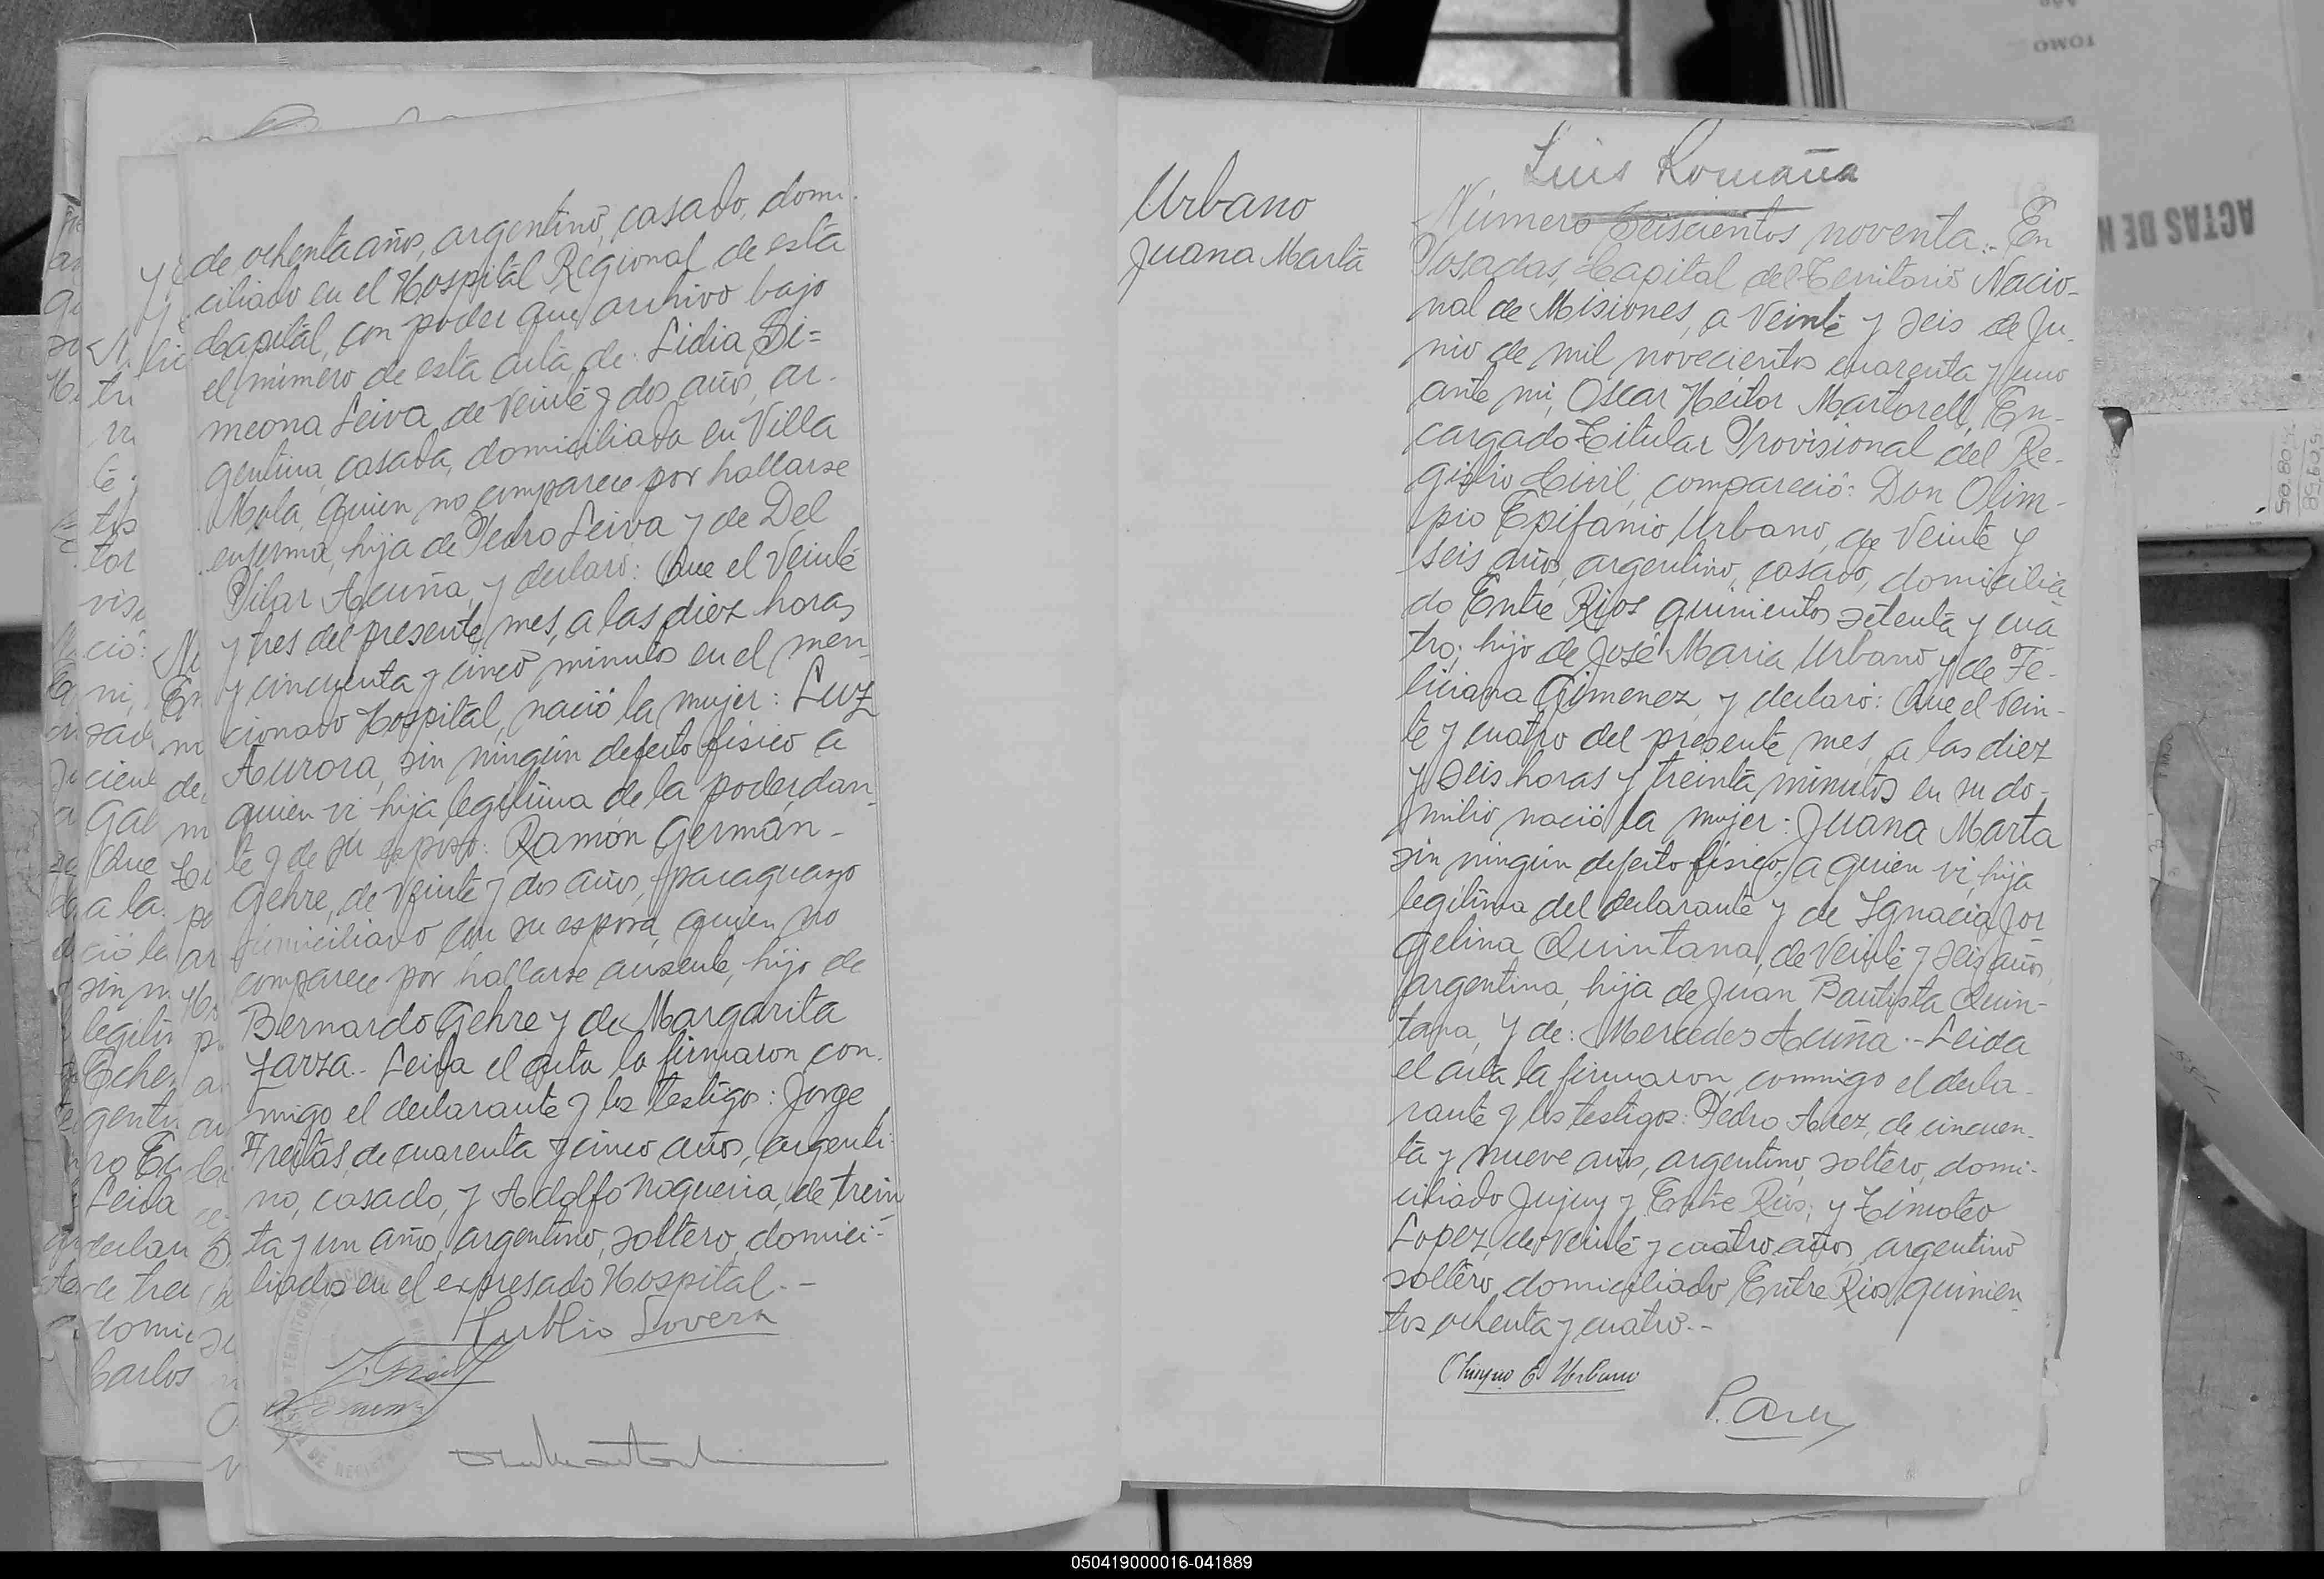 de ochenta años, argentino, casado, domi-
ciliado en el Hospital Regional de esta
Capital, con poder que archivo bajo
el número de esta acta, de: Lidia Si=
meona Leiva, de veinte y dos años, ar-
gentina, casada, domiciliada en Villa
Mola, quien no comparece por hallarse
enferma, hija de Pedro Leiva y de Del
Pilar Acuña, y declaró: Que el veinte
y tres del presente mes, a las diez horas
y cincuenta y cinco minutos en el men-
cionado Hospital, nació la mujer: Luz
Aurora, sin ningún defecto físico a
quien vi hija legítima de la poderdan-
te y de su esposo: Ramón Germán-
Gehre, de veinte y dos años, paraguayo
domiciliado con su esposa, quien no
comparece por hallarse ausente, hijo de
Bernardo Gehre y de Margarita
Zarza.- Leida el acta la firmaron con-
migo el declarante y los testigos: Jorge
Freitas, de cuarenta y cinco años, argenti-
no, casado, y Adolfo Nogueria, de trein
ta y un año, argentino, soltero, domici-
liados en el expresado Hospital.-
Publio Lovera
Urbano
Juana Marta
Luis Romaña
Número Seiscientos noventa.- En
Posadas, Capital del Territorio Nacio-
nal de Misiones, a veinte y seis de Ju-
nio de mil novecientos cuarenta y uno
ante mi, Oscar Héctor Martorell, En-
cargado Titular Provisional del Re-
gistro Civil, compareció: Don Olim-
pio Epifanio Urbano, de veinte y
seis años, argentino, casado, domicilia
do Entre Rios quinientos setenta y cua
tro; hijo de José Maria Urbano y de Fe-
liciana Gimenez, y declaró: Que el vein-
te y cuatro del presente mes, a las diez
y seis horas y treinta minutos en su do-
milio nació la mujer: Juana Marta
sin ningún defecto físico, a quien vi, hija
legítima del declarante y de Ignacia Jor
gelina Quintana, de veinte y seis años
argentina, hija de Juan Bautista Quin-
tana, y de: Mercedes Acuña.- Leida
el acta la firmaron conmigo el decla-
rante y los testigos: Pedro Arez, de cincuen-
ta y nueve años, argentino, soltero, domi-
ciliado Jujuy y Entre Rios; y Timoteo
Lopez, de veinte y cuatro años, argentino
soltero, domiciliado Entre Rios quinien
tos ochenta y cuatro.-
Olimpio E Urbano
P. Arez
ACTAS DE N
TOMO
050419000016-041889